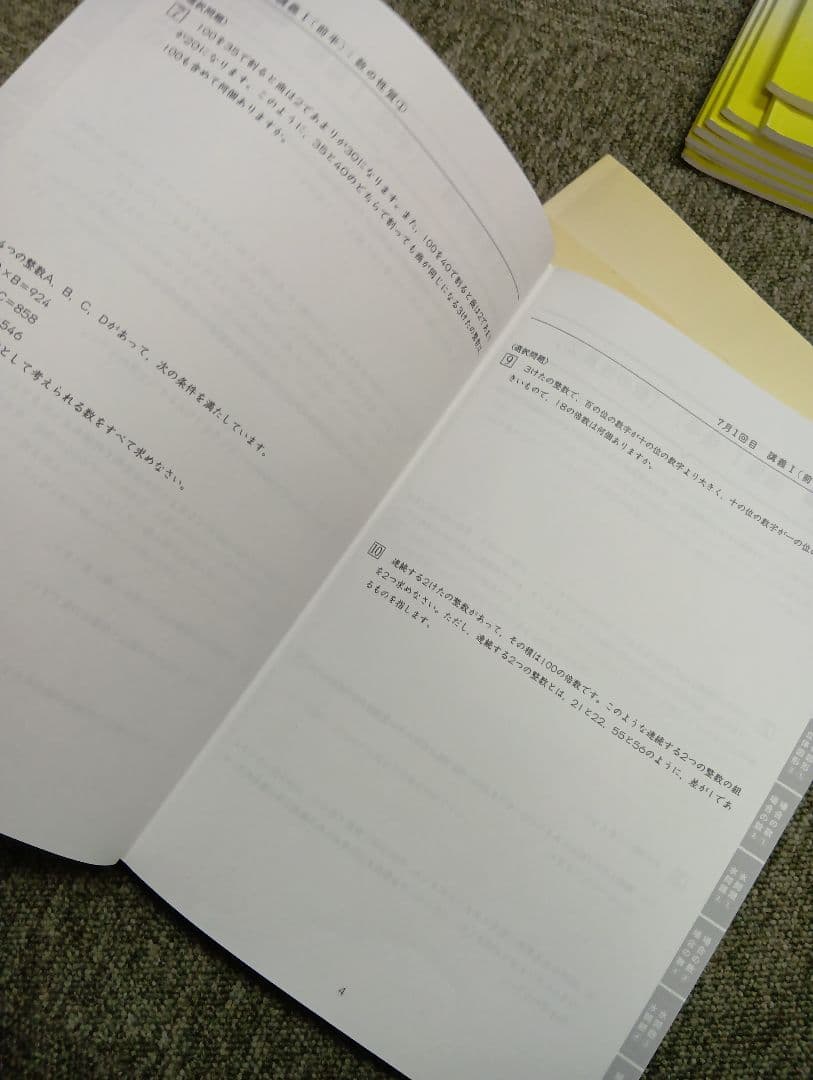 講義Ⅰ(前半):数の性質①
(選択問題)
7 100を35で割ると商は2であまりが30になります。また、100を40で割ると商は2であまり
が20になります。このように、35と40のどちらで割っても商が同じになる3けたの整数は
100も含めて何個ありますか。
4つの整数A、B、C、Dがあって、次の条件を満たしています。
×B=924
C=858
546
として考えられる数をすべて求めなさい。
7月1回目 講義Ⅰ(前
(選択問題)
9 3けたの整数で、百の位の数字が十の位の数字より大きく、十の位の数字が一の位の
きいもので、18の倍数は何個ありますか。
10 連続する2けたの整数があって、その積は100の倍数です。このような連続する2つの整数の組
を2つ求めなさい。ただし、連続する2つの整数とは、21と22、55と56のように、差が1であ
るものを指します。
場合の数
4